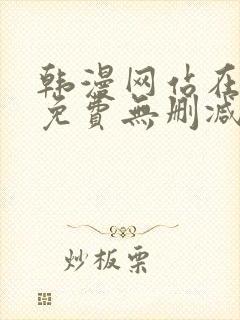 韩漫网站在
免費無删减
炒板栗